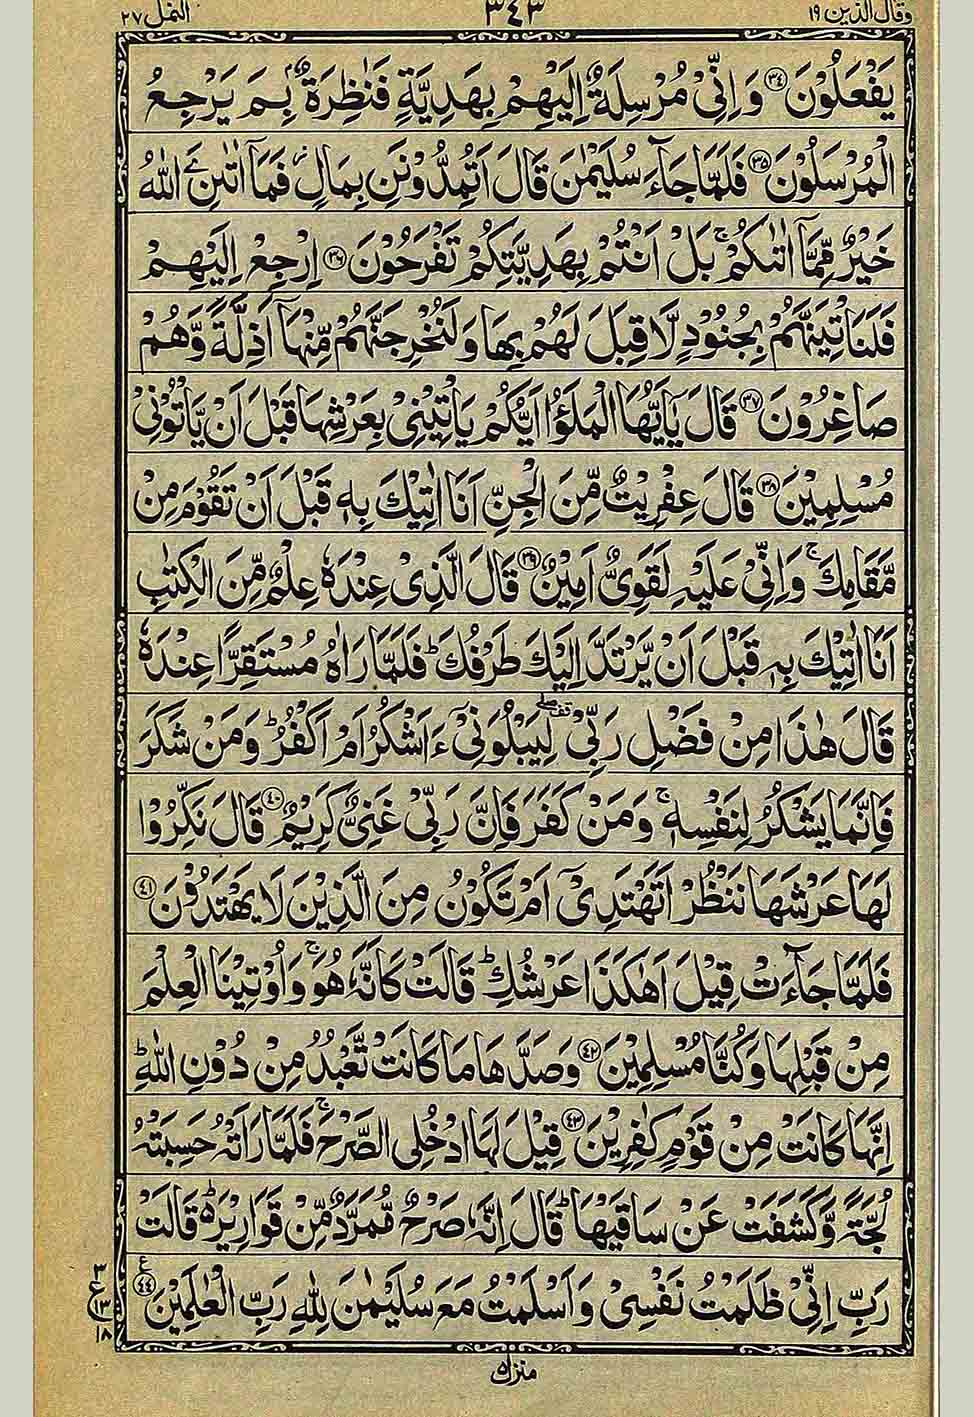 وقال الذين ١٩
٣٤٣
النمل ٢٧
يَفْعَلُوْنَ ﴿٣٤﴾ وَاِنِّىْ مُرْسِلَةٌ اِلَيْهِمْ بِهَدِيَّةٍ فَنٰظِرَةٌۢ بِمَ يَرْجِعُ
الْمُرْسَلُوْنَ ﴿٣٥﴾ فَلَمَّا جَآءَ سُلَيْمٰنَ قَالَ اَتُمِدُّوْنَنِ بِمَالٍ ز فَمَآ اٰتٰىنِۦَ اللّٰهُ
خَيْرٌ مِّمَّآ اٰتٰىكُمْ ۚ بَلْ اَنْتُمْ بِهَدِيَّتِكُمْ تَفْرَحُوْنَ ﴿٣٦﴾ اِرْجِعْ اِلَيْهِمْ
فَلَنَاْتِيَنَّهُمْ بِجُنُوْدٍ لَّا قِبَلَ لَهُمْ بِهَا وَلَنُخْرِجَنَّهُمْ مِّنْهَآ اَذِلَّةً وَّهُمْ
صَاغِرُوْنَ ﴿٣٧﴾ قَالَ يٰٓاَيُّهَا الْمَلَؤُا اَيُّكُمْ يَاْتِيْنِىْ بِعَرْشِهَا قَبْلَ اَنْ يَّاْتُوْنِىْ
مُسْلِمِيْنَ ﴿٣٨﴾ قَالَ عِفْرِيْتٌ مِّنَ الْجِنِّ اَنَا اٰتِيْكَ بِهٖ قَبْلَ اَنْ تَقُوْمَ مِنْ
مَّقَامِكَ ۚ وَاِنِّىْ عَلَيْهِ لَقَوِىٌّ اَمِيْنٌ ﴿٣٩﴾ قَالَ الَّذِىْ عِنْدَهٗ عِلْمٌ مِّنَ الْكِتٰبِ
اَنَا اٰتِيْكَ بِهٖ قَبْلَ اَنْ يَّرْتَدَّ اِلَيْكَ طَرْفُكَ ؕ فَلَمَّا رَاٰهُ مُسْتَقِرًّا عِنْدَهٗ
قَالَ هٰذَا مِنْ فَضْلِ رَبِّىْ قف لِيَبْلُوَنِىْٓ ءَاَشْكُرُ اَمْ اَكْفُرُ ؕ وَمَنْ شَكَرَ
فَاِنَّمَا يَشْكُرُ لِنَفْسِهٖ ۚ وَمَنْ كَفَرَ فَاِنَّ رَبِّىْ غَنِىٌّ كَرِيْمٌ ﴿٤٠﴾ قَالَ نَكِّرُوْا
لَهَا عَرْشَهَا نَنْظُرْ اَتَهْتَدِىْٓ اَمْ تَكُوْنُ مِنَ الَّذِيْنَ لَا يَهْتَدُوْنَ ﴿٤١﴾
فَلَمَّا جَآءَتْ قِيْلَ اَهٰكَذَا عَرْشُكِ ؕ قَالَتْ كَاَنَّهٗ هُوَ ۚ وَاُوْتِيْنَا الْعِلْمَ
مِنْ قَبْلِهَا وَكُنَّا مُسْلِمِيْنَ ﴿٤٢﴾ وَصَدَّهَا مَا كَانَتْ تَّعْبُدُ مِنْ دُوْنِ اللّٰهِ ؕ
اِنَّهَا كَانَتْ مِنْ قَوْمٍ كٰفِرِيْنَ ﴿٤٣﴾ قِيْلَ لَهَا ادْخُلِى الصَّرْحَ ۚ فَلَمَّا رَاَتْهُ حَسِبَتْهُ
لُجَّةً وَّكَشَفَتْ عَنْ سَاقَيْهَا ؕ قَالَ اِنَّهٗ صَرْحٌ مُّمَرَّدٌ مِّنْ قَوَارِيْرَ ؕ قَالَتْ
رَبِّ اِنِّىْ ظَلَمْتُ نَفْسِىْ وَاَسْلَمْتُ مَعَ سُلَيْمٰنَ لِلّٰهِ رَبِّ الْعٰلَمِيْنَ ﴿٤٤﴾ ع
٣
ع
١٣
١٨
منزل ٥